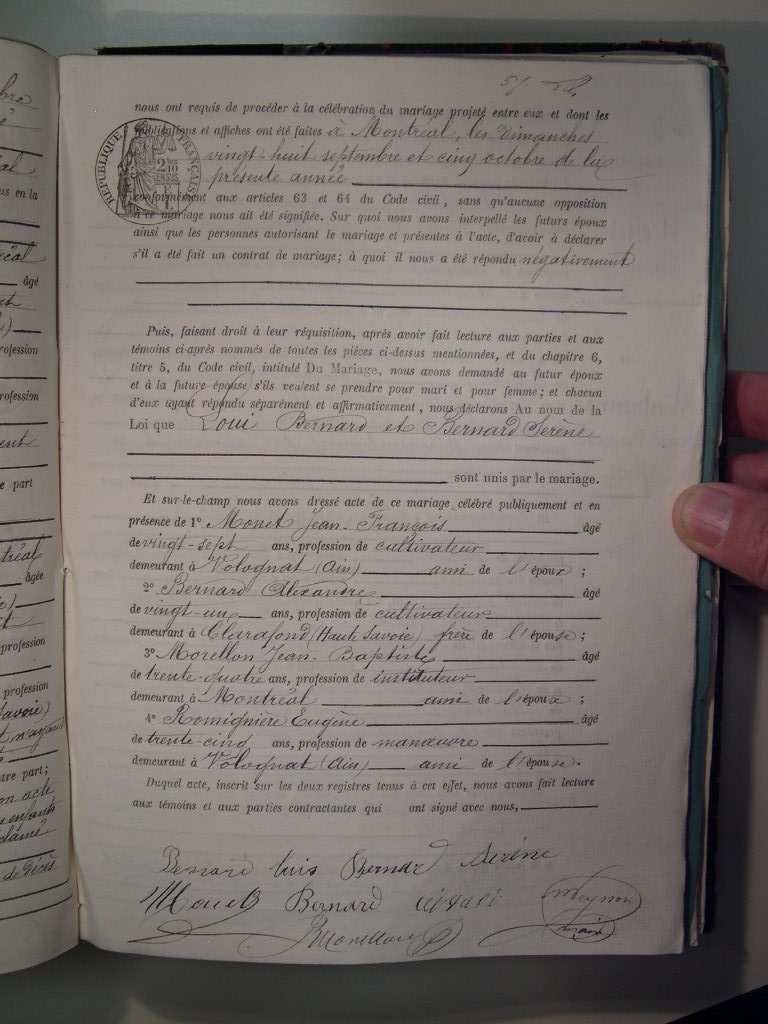 nous ont requis de procéder à la célébration du mariage projeté entre eux et dont les
publications et affiches ont été faites à Montréal, les Dimanches
vingt-huit septembre et cinq octobre de la
présente année
RÉPUBLIQUE FRANÇAISE
conformément aux articles 63 et 64 du Code civil, sans qu'aucune opposition
à ce mariage nous ait été signifiée. Sur quoi nous avons interpellé les futurs époux
ainsi que les personnes autorisant le mariage et présentes à l'acte, d'avoir à déclarer
s'il a été fait un contrat de mariage; à quoi il nous a été répondu négativement
Puis, faisant droit à leur réquisition, après avoir fait lecture aux parties et aux
témoins ci-après nommés de toutes les pièces ci-dessus mentionnées, et du chapitre 6,
titre 5, du Code civil, intitulé Du Mariage, nous avons demandé au futur époux
et à la future épouse s'ils veulent se prendre pour mari et pour femme; et chacun
d'eux ayant répondu séparément et affirmativement, nous déclarons Au nom de la
Loi que Loui Bernard et Bernard Serène
sont unis par le mariage.
Et sur-le-champ nous avons dressé acte de ce mariage célébré publiquement et en
présence de 1° Monet Jean-François âgé
de vingt-sept ans, profession de cultivateur
demeurant à Volognat (Ain) ami de l'époux ;
2° Bernard Alexandre âgé
de vingt-un ans, profession de cultivateur
demeurant à Clarafond (Haute Savoie) frère de l'épouse ;
3° Morellon Jean-Baptiste âgé
de trente-quatre ans, profession de instituteur
demeurant à Montréal ami de l'époux ;
4° Romignière Eugène âgé
de trente-cinq ans, profession de manœuvre
demeurant à Volognat (Ain) ami de l'épouse.
Duquel acte, inscrit sur les deux registres tenus à cet effet, nous avons fait lecture
aux témoins et aux parties contractantes qui ont signé avec nous,
Bernard luis Bernard Serène
Bernard
Morellon